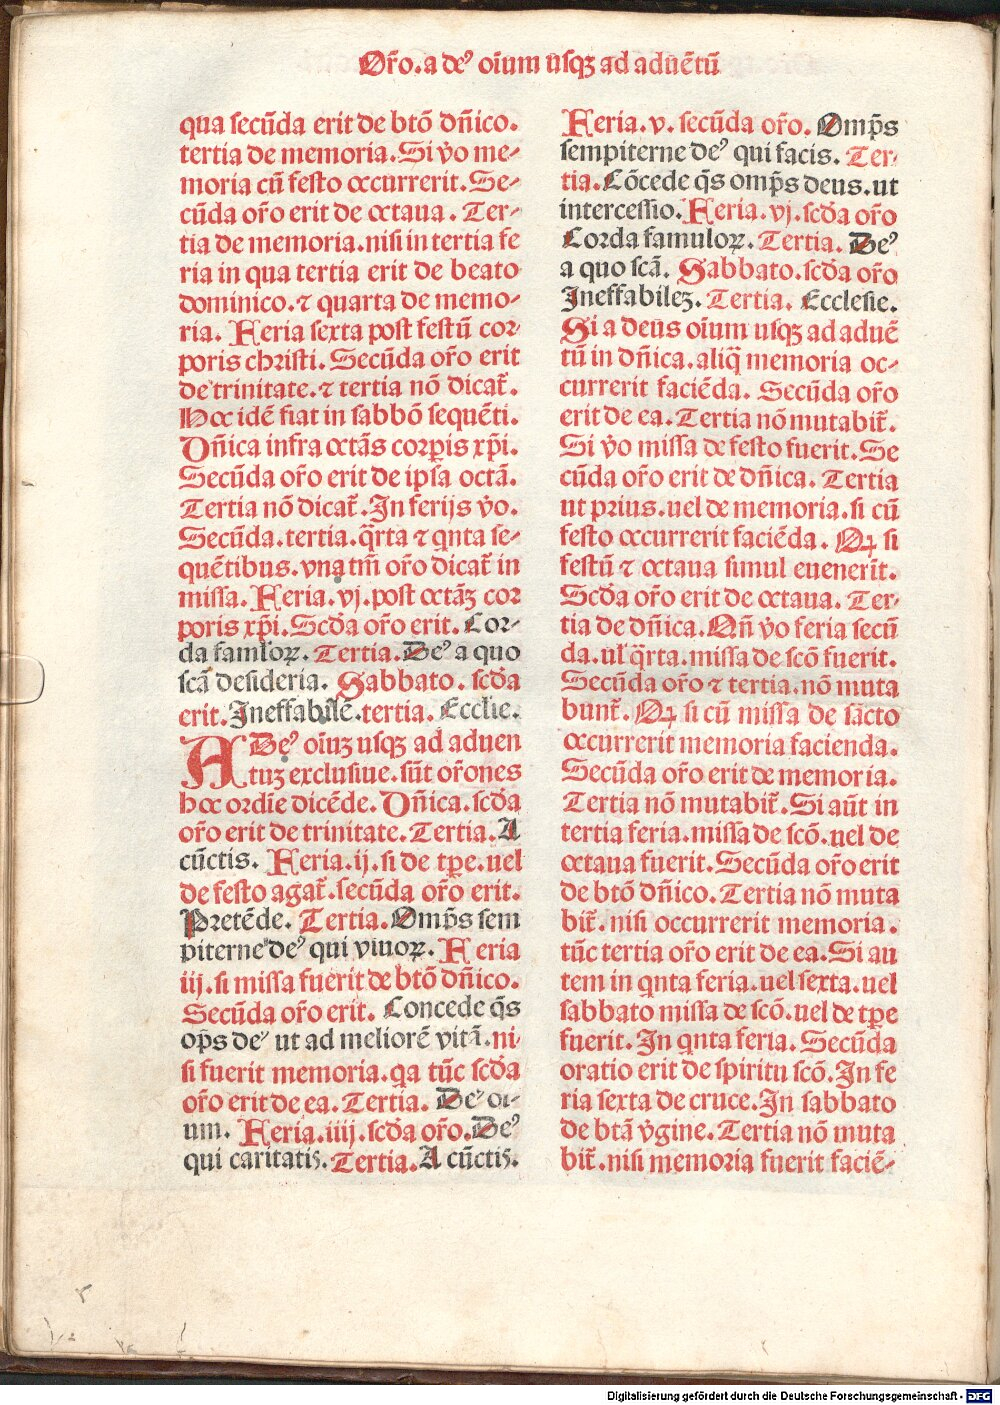 Or̃o. a deꝰ oı̃um usqꝫ ad aduẽtũ
qua secũda erit de btõ dñico.
tertia de memoria. Si ṽo me-
moria cũ festo occurrerit. Se-
cũda or̃o erit de octaua. Ter-
tia de memoria. nisi in tertia fe
ria in qua tertia erit de beato
dominico. ⁊ quarta de memo-
ria. Feria sexta post festũ cor-
poris christi. Secũda or̃o erit
de trinitate. ⁊ tertia nõ dicat̃.
Hoc idẽ fiat in sabbõ sequẽti.
Dñica infra octãs corp̱is xp̃i.
Secũda or̃o erit de ipsa octã.
Tertia nõ dicat̃. In ferijs ṽo.
Secũda. tertia. q̃rta ⁊ qnta se-
quẽtibus. vna tm̃ or̃o dicat̃ in
missa. Feria. vj. post octãꝫ cor
poris xp̃i. Scd̃a or̃o erit. Cor-
da famlõꝝ. Tertia. Deꝰ a quo
scã desideria. Sabbato. scd̃a
erit. Ineffabilẽ. tertia. Ecclie.
A Deꝰ oı̃uꝫ usqꝫ ad aduen
tuꝫ exclusiue. sũt or̃ones
hoc ordı̃e dicẽde. Dñica. scd̃a
or̃o erit de trinitate. Tertia. A
cũctis. Feria. ij. si de tp̱e. uel
de festo agat̃. secũda or̃o erit.
Pretẽde. Tertia. Omp̃s sem
piterne deꝰ qui viuoꝝ. Feria
iij. si missa fuerit de btõ dñico.
Secũda or̃o erit. Concede q̃s
op̃s deꝰ ut ad meliorẽ vitã. ni-
si fuerit memoria. qa tũc scd̃a
or̃o erit de ea. Tertia. Deꝰ oı̃-
um. Feria. iiij. scd̃a or̃o. Deꝰ
qui caritatis. Tertia. A cũctis.
Feria. v. secũda or̃o. Omp̃s
sempiterne deꝰ qui facis. Ter-
tia. Cõcede q̃s omp̃s deus. ut
intercessio. Feria. vj. scd̃a or̃o
Corda famuloꝝ. Tertia. Deꝰ
a quo scã. Sabbato. scd̃a or̃o
Ineffabileꝫ. Tertia. Ecclesie.
Si a deus oı̃um usqꝫ ad aduẽ
tũ in dñica. aliq̃ memoria oc-
currerit faciẽda. Secũda or̃o
erit de ea. Tertia nõ mutabit̃.
Si ṽo missa de festo fuerit. Se
cũda or̃o erit de dñica. Tertia
ut prius. uel de memoria. si cũ
festo occurrerit faciẽda. Qꝗ si
festũ ⁊ octaua simul euenerı̃t.
Scd̃a or̃o erit de octaua. Ter-
tia de dñica. Qñ ṽo feria secũ
da. ul̃ q̃rta. missa de scõ fuerit.
Secũda or̃o ⁊ tertia. nõ muta
bunt̃. Qꝗ si cũ missa de sãcto
occurrerit memoria facienda.
Secũda or̃o erit de memoria.
Tertia nõ mutabit̃. Si aũt in
tertia feria. missa de scõ. uel de
octaua fuerit. Secũda or̃o erit
de btõ dñico. Tertia nõ muta
bit̃. nisi occurrerit memoria.
tũc tertia or̃o erit de ea. Si au
tem in qnta feria. uel sexta. uel
sabbato missa de scõ. uel de tp̱e
fuerit. In qnta feria. Secũda
oratio erit de spiritu scõ. In fe
ria sexta de cruce. In sabbato
de btã ṽgine. Tertia nõ muta
bit̃. nisi memoria fuerit faciẽ-
Digitalisierung gefördert durch die Deutsche Forschungsgemeinschaft - DFG